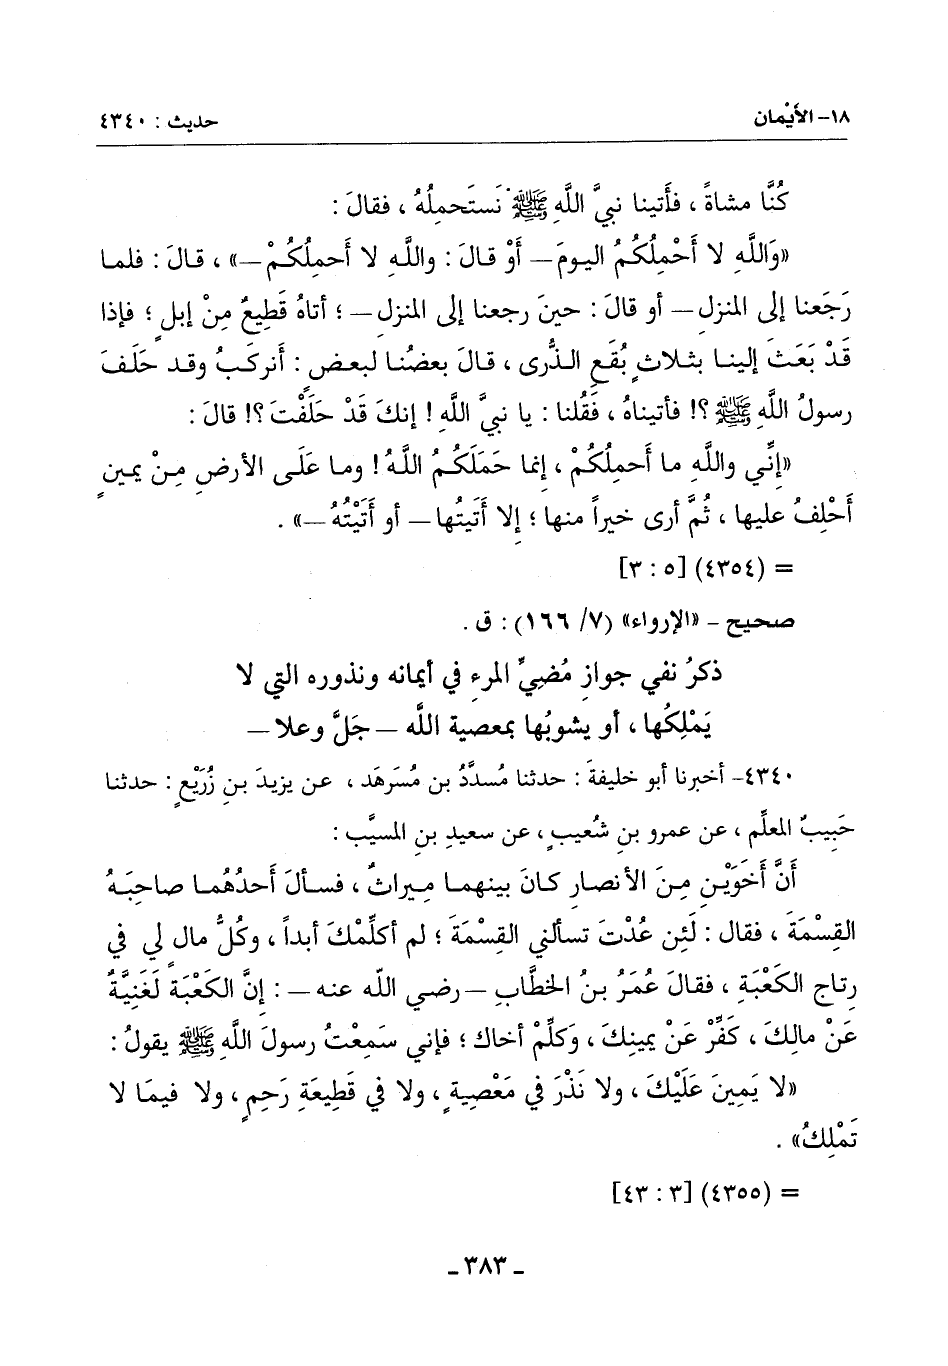 ١٨- الأَيْمان
حديث : ٤٣٤٠
كُنَّا مشاةً ، فأَتينا نبيَّ اللَّهِ ﷺ نَستَحمِلُهُ ، فقالَ :
«وَاللَّهِ لا أَحْمِلُكُمُ اليومَ – أَوْ قالَ : واللَّهِ لا أَحمِلُكُمْ –» ، قالَ : فلما
رَجَعنا إلى المنزلِ – أو قالَ : حينَ رجعنا إلى المنزلِ – ؛ أتاهُ قَطِيعٌ مِنْ إبلٍ ؛ فإذا
قَدْ بَعَثَ إلينا بثلاثٍ بُقَعِ الذُّرى ، قالَ بعضُنا لبعضٍ : أَنركَبُ وقد حَلَفَ
رسولُ اللَّهِ ﷺ ؟! فأتيناهُ ، فَقُلنا : يا نبيَّ اللَّهِ ! إنكَ قَدْ حَلَفْتَ ؟! قالَ :
«إنِّي واللَّهِ ما أَحملُكُمْ ، إنما حَمَلَكُمُ اللَّهُ ! وما عَلَى الأرضِ مِنْ يمينٍ
أَحْلِفُ عليها ، ثُمَّ أرى خيراً منها ؛ إلا أَتَيتُها – أو أَتَيْتُهُ –» .
= (٤٣٥٤) [٥ : ٣]
صحيح - «الإرواء» (٧/ ١٦٦) : ق .
ذكرُ نفي جوازِ مُضِيِّ المرءِ في أيمانه ونذوره التي لا
يَمْلِكُها ، أو يشوبُها بمعصية اللَّه – جَلَّ وعلا –
٤٣٤٠- أخبرنا أبو خليفةَ : حدثنا مُسدَّدُ بن مُسَرهَد ، عن يزيدَ بنِ زُرَيْعٍ : حدثنا
حَبيبٌ المعلِّم ، عن عمرو بنِ شُعيبٍ ، عن سعيدِ بنِ المسيَّبِ :
أَنَّ أَخَوَيْنِ مِنَ الأنصارِ كانَ بينهما ميراثٌ ، فسألَ أَحدُهُما صاحِبَهُ
القِسْمَةَ ، فقال : لَئِن عُدْتَ تسألني القِسْمَةَ ؛ لم أكلِّمْكَ أبداً ، وكُلُّ مالٍ لي في
رتاجِ الكَعْبَةِ ، فقالَ عُمَرُ بنُ الخطَّابِ – رضي اللّه عنه – : إنَّ الكَعْبَةَ لَغَنِيَّةٌ
عَنْ مالِكَ ، كَفِّرْ عَنْ يمينِكَ ، وَكلِّمْ أخاكَ ؛ فإني سَمِعْتُ رسولَ اللَّهِ ﷺ يقولُ :
«لا يَمِينَ عَلَيْكَ ، ولا نَذْرَ في مَعْصِيةٍ ، ولا في قَطِيعَةِ رَحِمٍ ، ولا فيمَا لا
تَمْلِكُ» .
= (٤٣٥٥) [٣ : ٤٣]
- ٣٨٣ -